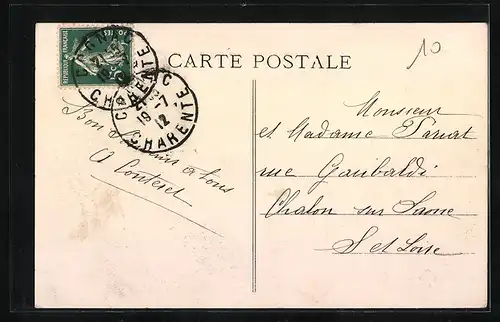 10
CARTE POSTALE
RÉPUBLIQUE FRANÇAISE
POSTES
COGNAC
CHARENTE
COGNAC
19-7
12
CHARENTE
Bon à tous
Monsieur
et Madame
rue Garibaldi
Chalon sur Saone
S et Loire